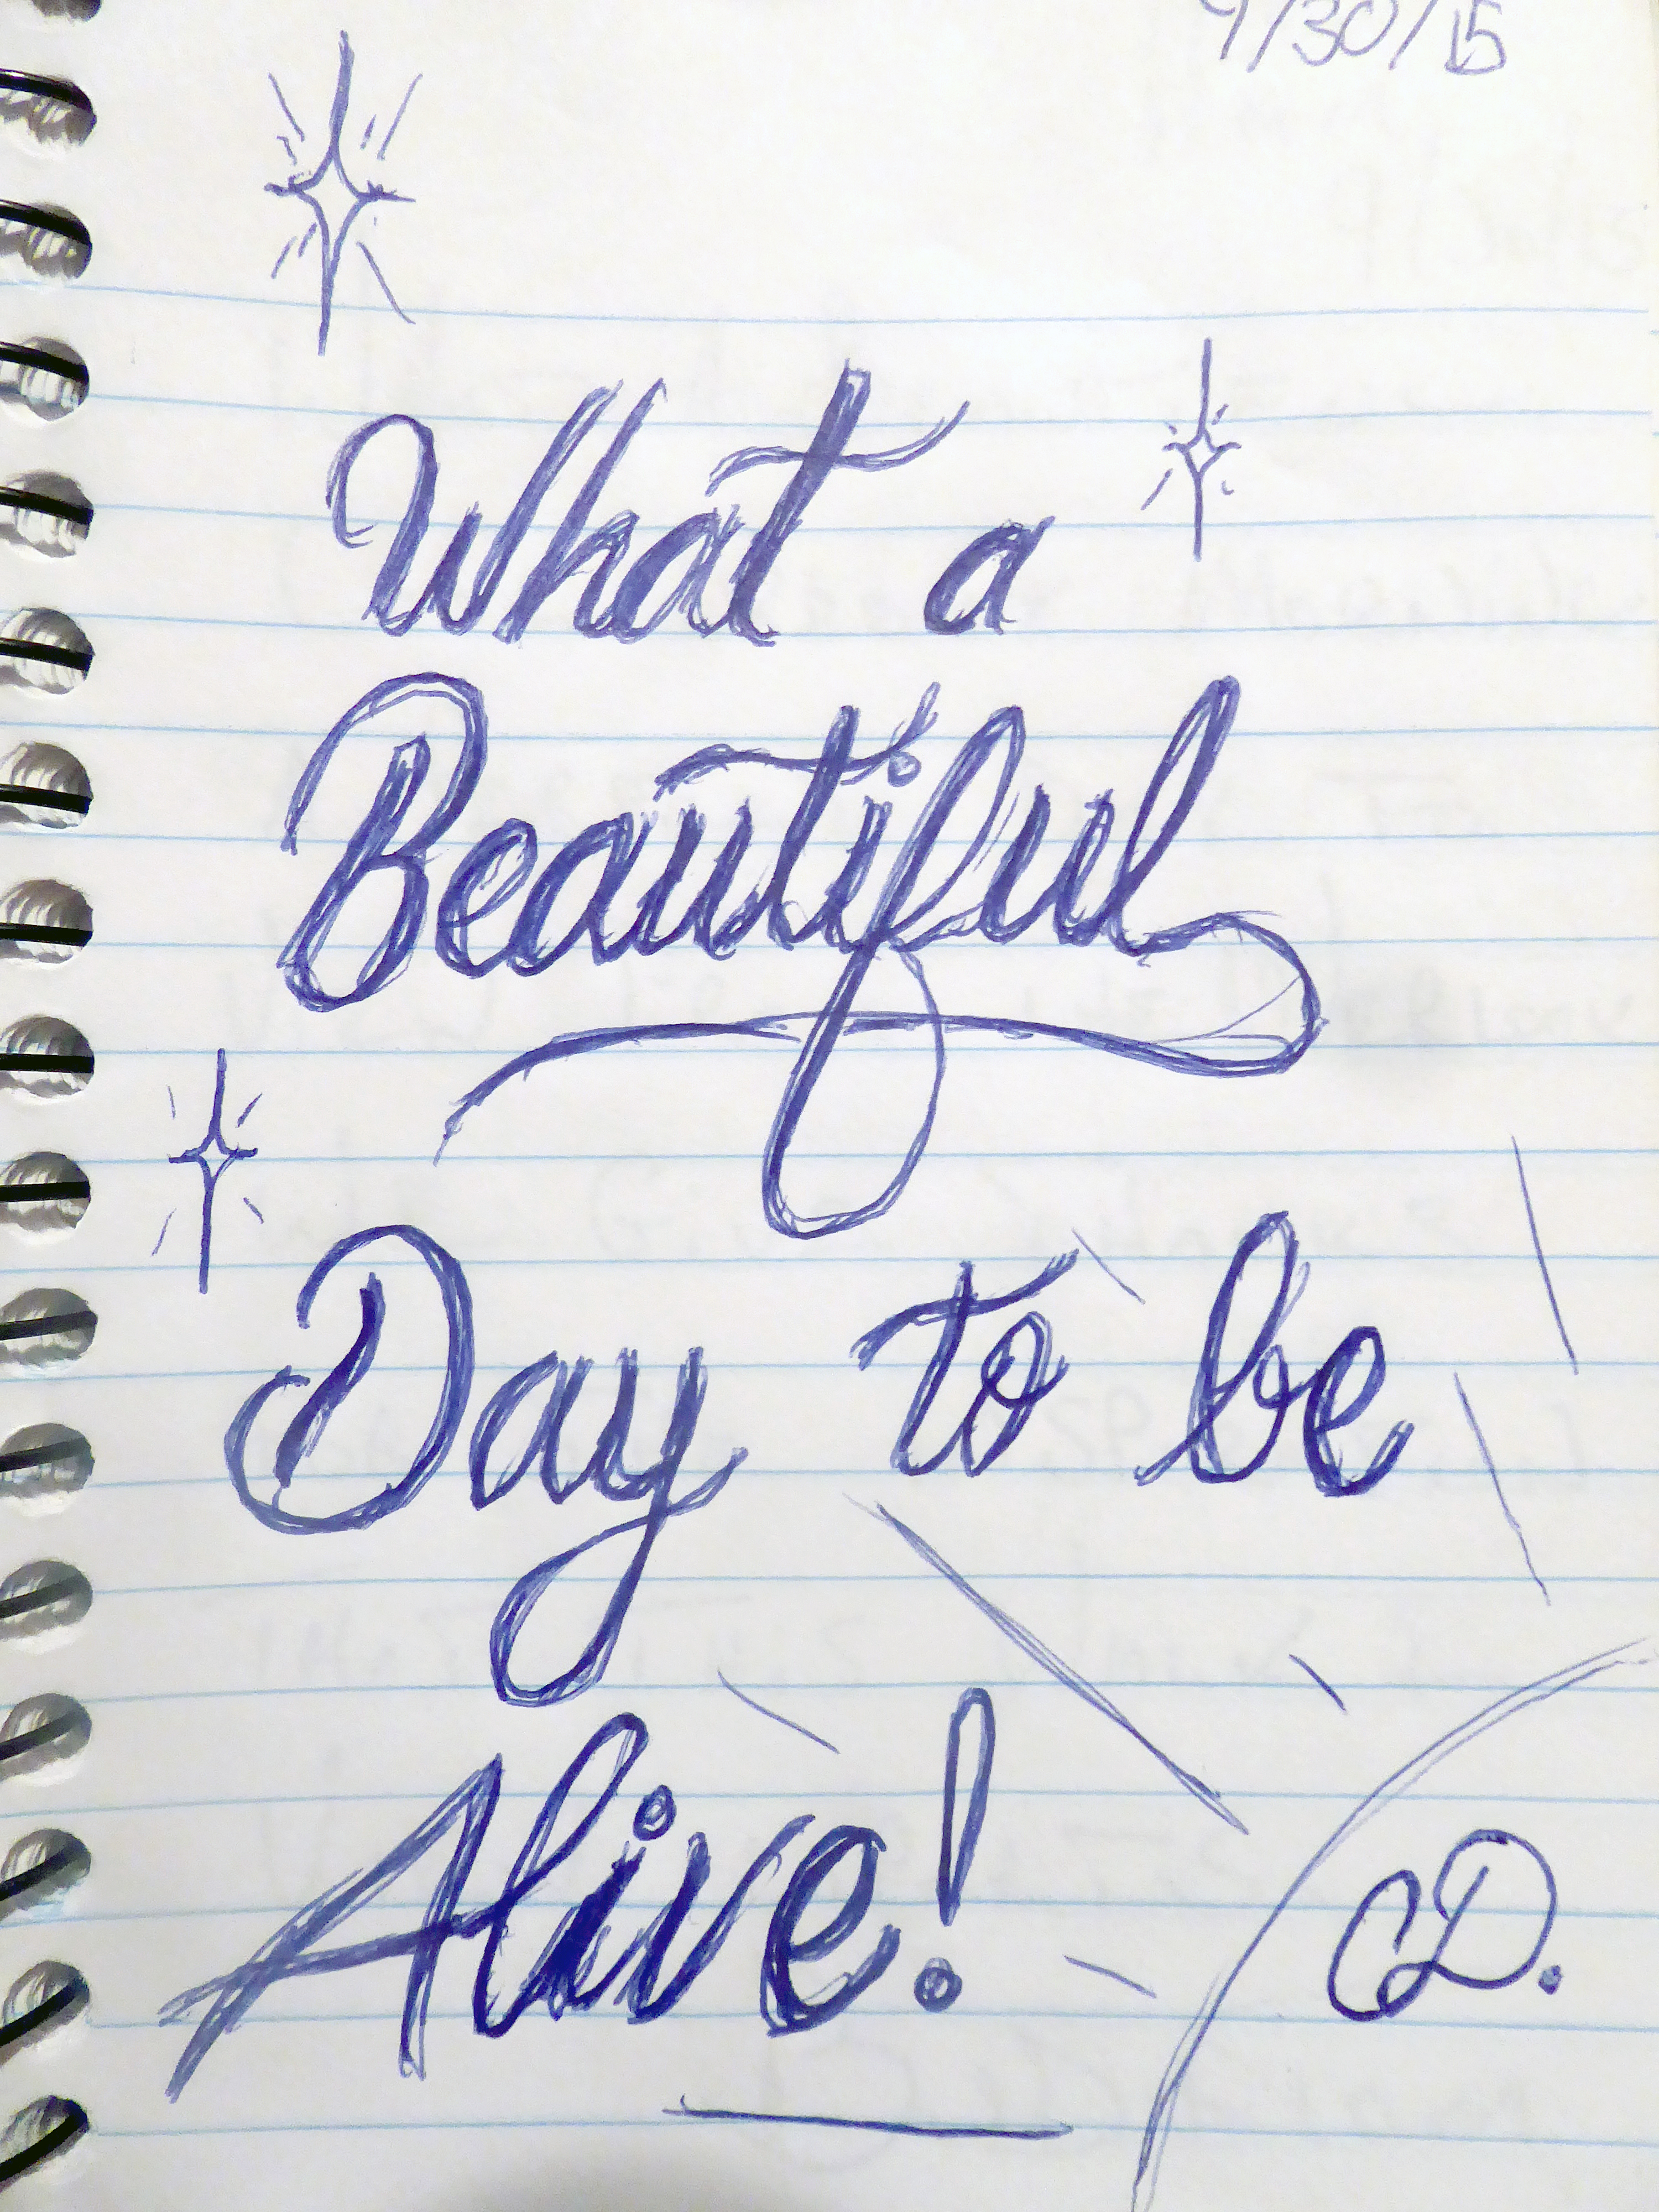 9/30/15
What a
Beautiful
Day to be
Alive!
CD.